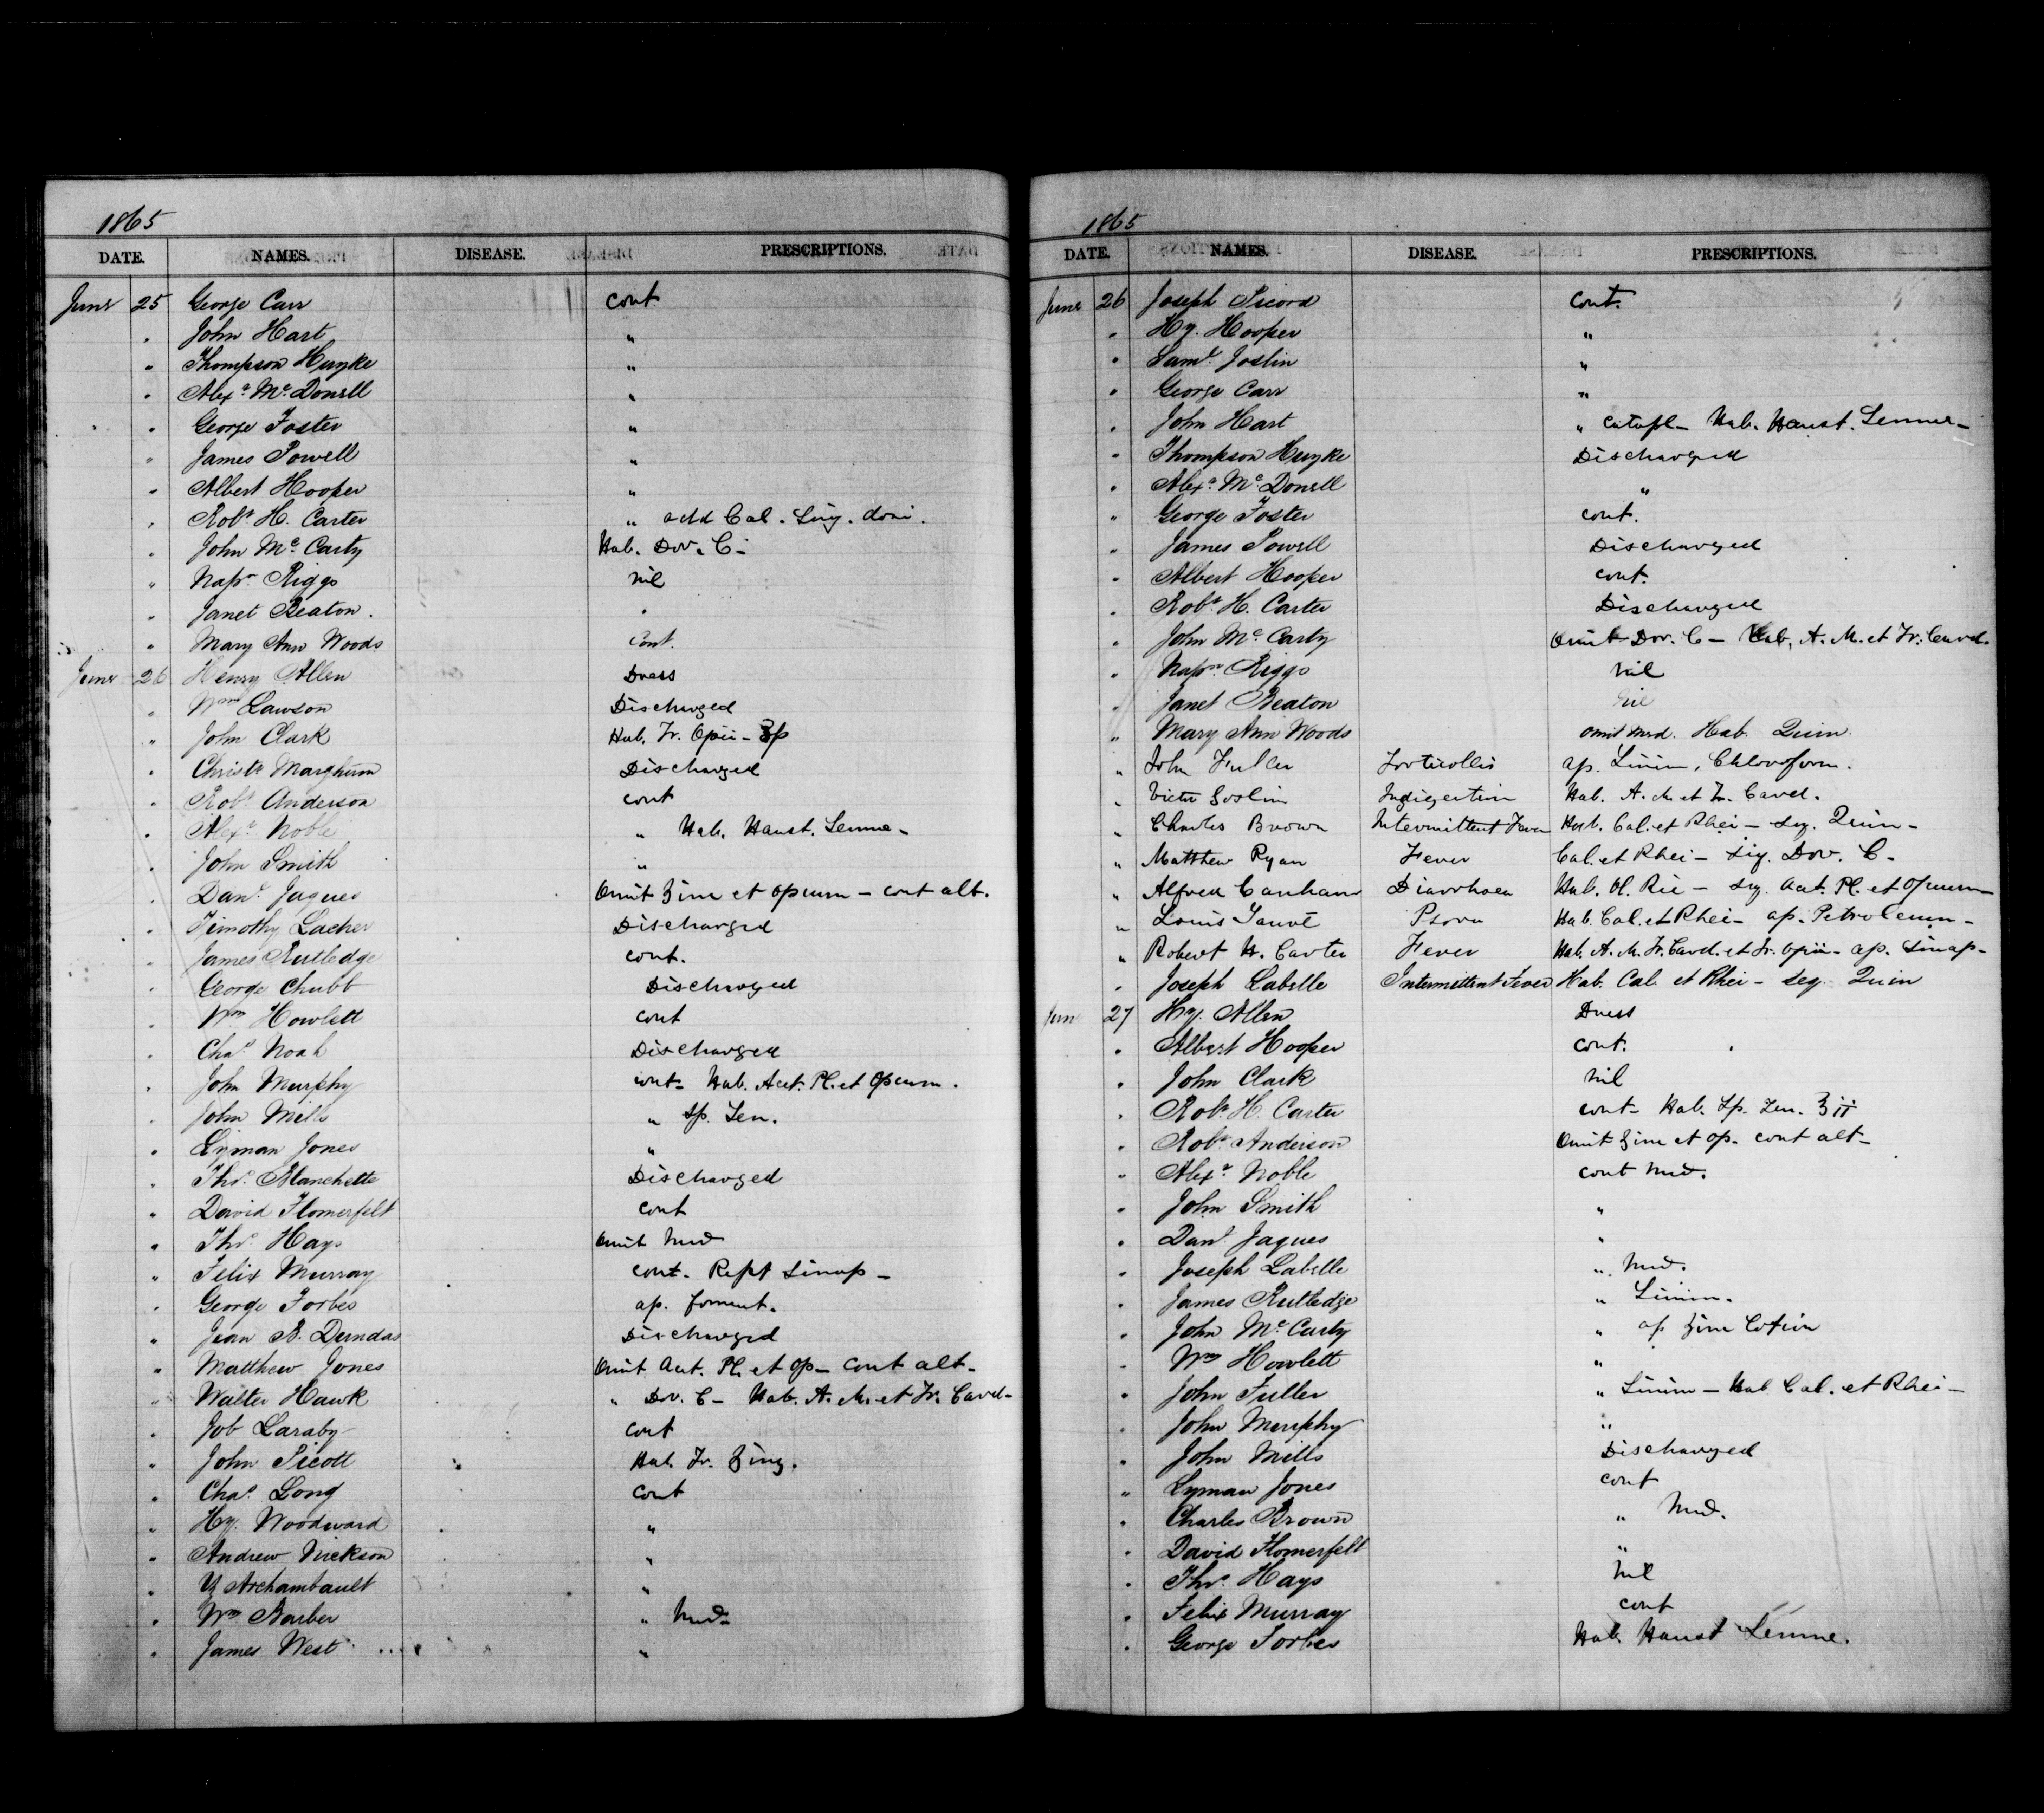 1865
DATE. NAMES. DISEASE. PRESCRIPTIONS.
June 25 George Carr cont
" John Hart "
" Thompson Huyke "
" Alexr McDonell "
" George Foster "
" James Powell "
" Albert Hooper "
" Robt H. Carter " add Cal.
" John McCarty Hab. Dov. C-
" Napn Riggs nil
" Janet Beaton. "
" Mary Ann Woods cont.
June 26 Henry Allen Dress
" Wm Lawson Discharged
" John Clark Hab. Tr. Opii -
" Christr Marghum Discharged
" Robt Anderson cont
" Alexr Noble " Hab. Haust. Sennae -
" John Smith "
" Danl Jaques Omit Zinc et opium - cont alt.
" Timothy Lacher Discharged
" James Rutledge cont.
" George Chubb Discharged
" Wm Howlett cont
" Chas Noah Discharged
" John Murphy cont - Hab. Acet. Pl. et Opium.
" John Mills " Sp. Ten.
" Lyman Jones "
" Thos Blanchette Discharged
" David Flomerfelt cont
" Thos Hays Omit Med
" Felix Murray cont. Rept Sinap -
" George Forbes ap. foment.
" Jean B. Dundas Discharged
" Matthew Jones Omit Acet. Pl. et Op - cont alt -
" Walter Hawk " Dov. C - Hab. A. M. et Tr. Card -
" Job Laraby cont
" John Picott Hab. Tr. Zing.
" Chas Long cont
" Hy. Woodward "
" Andrew Nickson "
" Y Archambault "
" Wm Barber " Med -
" James West "
1865
DATE. NAMES. DISEASE. PRESCRIPTIONS.
June 26 Joseph Picord cont.
" Hy. Hooper "
" Saml Joslin "
" George Carr "
" John Hart " Catapl - Hab. Haust. Sennae -
" Thompson Huyke Discharged
" Alexr McDonell "
" George Foster cont.
" James Powell Discharged
" Albert Hooper cont.
" Robt H. Carter Discharged
" John McCarty Omit Dov. C - Hab. A. M. et Tr. Card.
" Napn Riggs nil
" Janet Beaton nil
" Mary Ann Woods omit med. Hab. Quin.
" John Fuller Torticollis ap. Linim, Chloroform.
" Victor Goslin Indigestion Hab. A. M et Tr. Card.
" Charles Brown Intermittent Fever Hab. Cal. et Rhei - seq. Quin -
" Matthew Ryan Fever Cal. et Rhei - seq. Dov. C -
" Alfred Canham Diarrhoea Hab. Ol. Ric - seq. Acet. Pl. et Opium -
" Louis Jauvé Psora Hab. Cal. et Rhei - ap. Petroleum -
" Robert H. Carter Fever Hab. A. M. Tr. Card. et Tr. Opii - ap. Sinap -
" Joseph Labelle Intermittent Fever Hab. Cal. et Rhei - seq. Quin
June 27 Hy. Allen Dress
" Albert Hooper cont.
" John Clark nil
" Robt H. Carter cont - Hab. Sp. Ten. ʒii
" Robt Anderson Omit Zinc et op - cont alt -
" Alexr Noble cont Med.
" John Smith "
" Danl Jaques "
" Joseph Labelle " Med.
" James Rutledge " Linim.
" John McCarty " ap Zinc Lotion
" Wm Howlett "
" John Fuller " Linim - Hab Cal. et Rhei -
" John Murphy "
" John Mills Discharged
" Lyman Jones cont
" Charles Brown " Med.
" David Flomerfelt "
" Thos Hays nil
" Felix Murray cont
" George Forbes Hab. Haust Sennae.